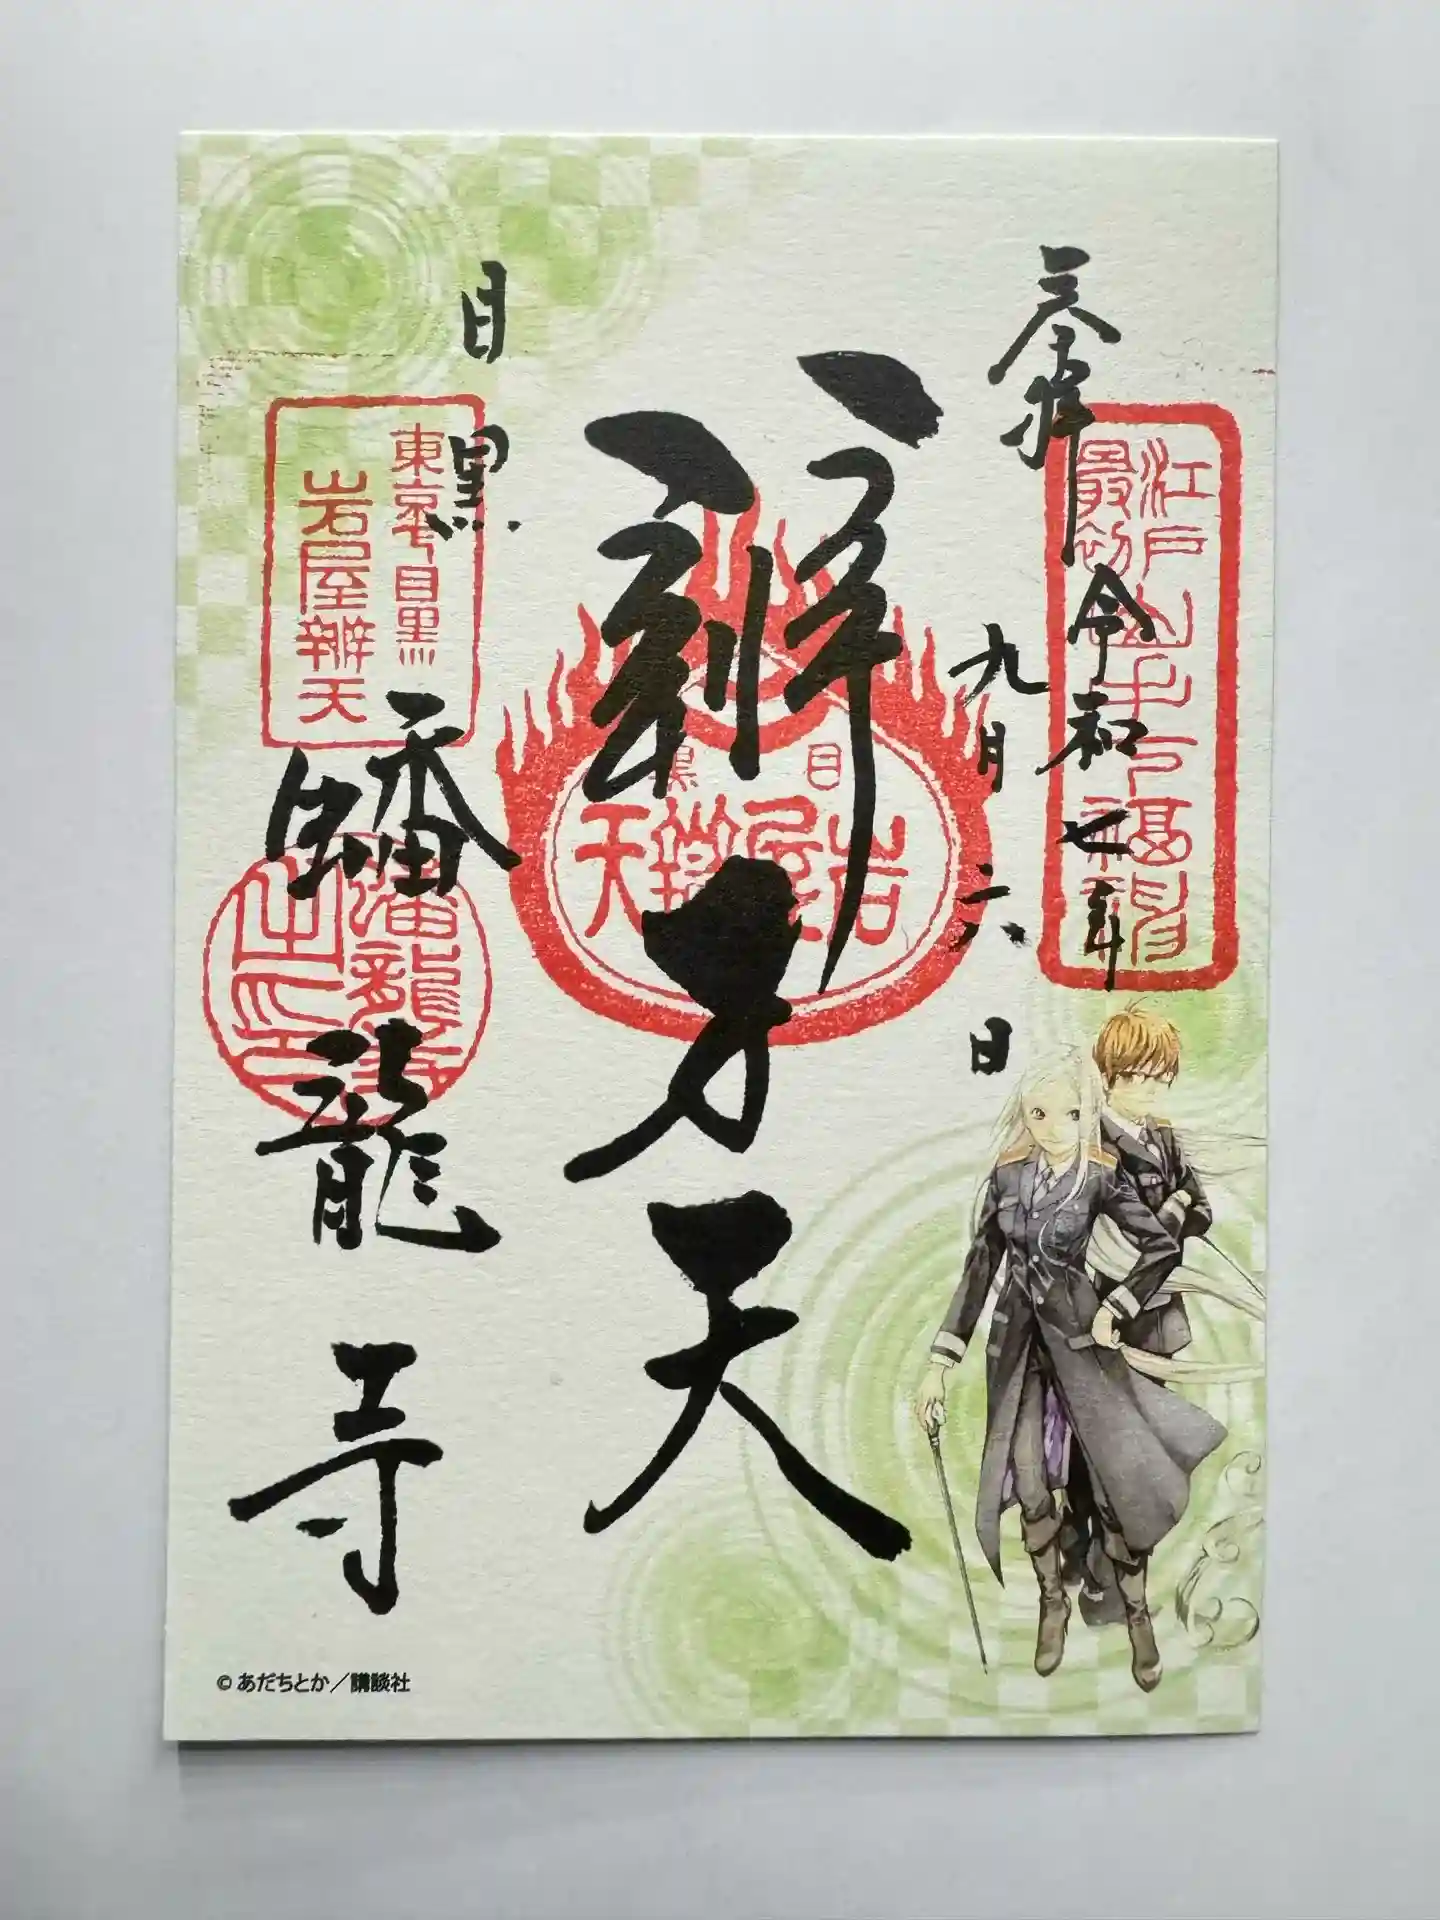 奉拝
令和七年
九月六日
江戸
最初
山手七福神
辨才天
目黒
岩屋辨天
目黒
蟠龍寺
東京目黒
岩屋辨天
蟠龍寺
之印
© あだちとか／講談社